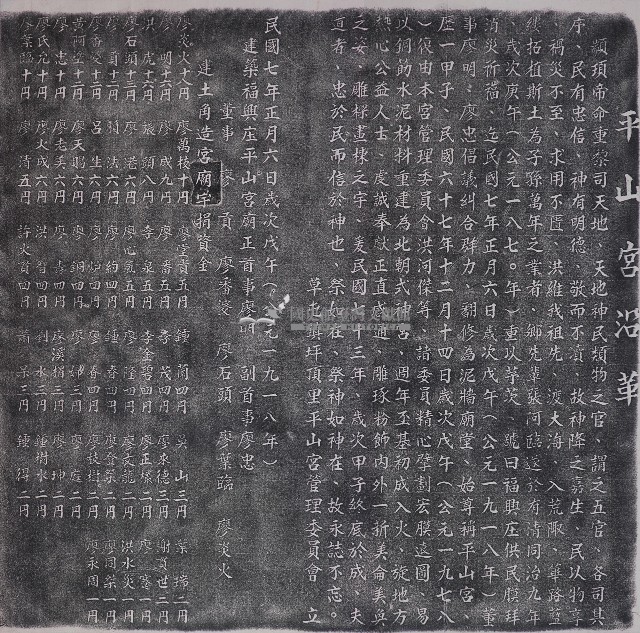 平山宮沿革
顓頊帝命重黎司天地、天地神民類物之官、謂之五官、各司其
序、民有忠信、神有明德、敬而不瀆、故神降之嘉生、民以物享
、禍災不至、求用不匱、洪維我祖先、渡大海、入荒陬、篳路藍
縷拓植斯土為子孫萬年之業者、鄉先輩張河臨遂於有清同治九年
、歲次庚午(公元一八七〇年)重以茅茨、號曰福興庄供民膜拜
消災祈福、迄民國七年正月六日歲次戊午(公元一九一八年)董
事廖明、廖忠倡議糾合群力、翻修為泥牆廟堂、始尊稱平山宮、
歷一甲子、民國六十七年十二月十四日歲次戊午(公元一九七八
)復由本宮管理委員會洪河傑等、請委員精心擘劃宏謨遠圖、易
以鋼筋水泥材料重建為北朝式神宮、週年丕基初成入火、旋地方
熱心公益人士、虔誠奉獻正直感通、雕琢粉飾內外一折美侖美奐
之安、雕樑畫棟之宇、爰民國七十三年、歲次甲子終底於成、夫
道者、忠於民而信於神也、祭如在、祭神如神在、故永誌不忘。
草屯鎮坪頂里平山宮管理委員會 立
民國七年正月六日歲次戊午(公元一九一八年)
建築福興庄平山宮廟正首事廖明 副首事廖忠
董事 廖貢 廖香愛 廖石頭 廖葉臨 廖炎火
建土角造宮廟宇捐資金
廖炎火十八円 廖萬枝十円 廖學貢五円 鍾 簡四円 吳 山三円 葉 猪二円
廖 明十八円 廖成九円 廖番五円 李茂四円 廖來德三円 謝貢世二円
洪 虎十六円 張頭八円 李泉五円 李金碧四円 廖正樑二円 廖 憲一円
廖石頭十三円 廖港六円 廖心氣五円 廖隆四円 廖文龍二円 洪水災一円
廖 貢十三円 顏法六円 廖約四円 鍾春四円 廖登祭二円 廖同榮一円
廖香愛十三円 呂生六円 廖炮四円 廖香四円 廖枝樹二円 廖永周一円
黃阿塗十二円 廖天賜六円 廖鋼四円 廖娜三円 廖庭二円
廖 忠十円 廖老美六円 廖喜四円 廖溪捐三円 廖坤二円
廖氏允十円 廖火成六円 洪智四円 劉水三円 鍾樹水二円
廖葉臨十円 廖清五円 許火貢四円 蕭荣三円 鍾得二円